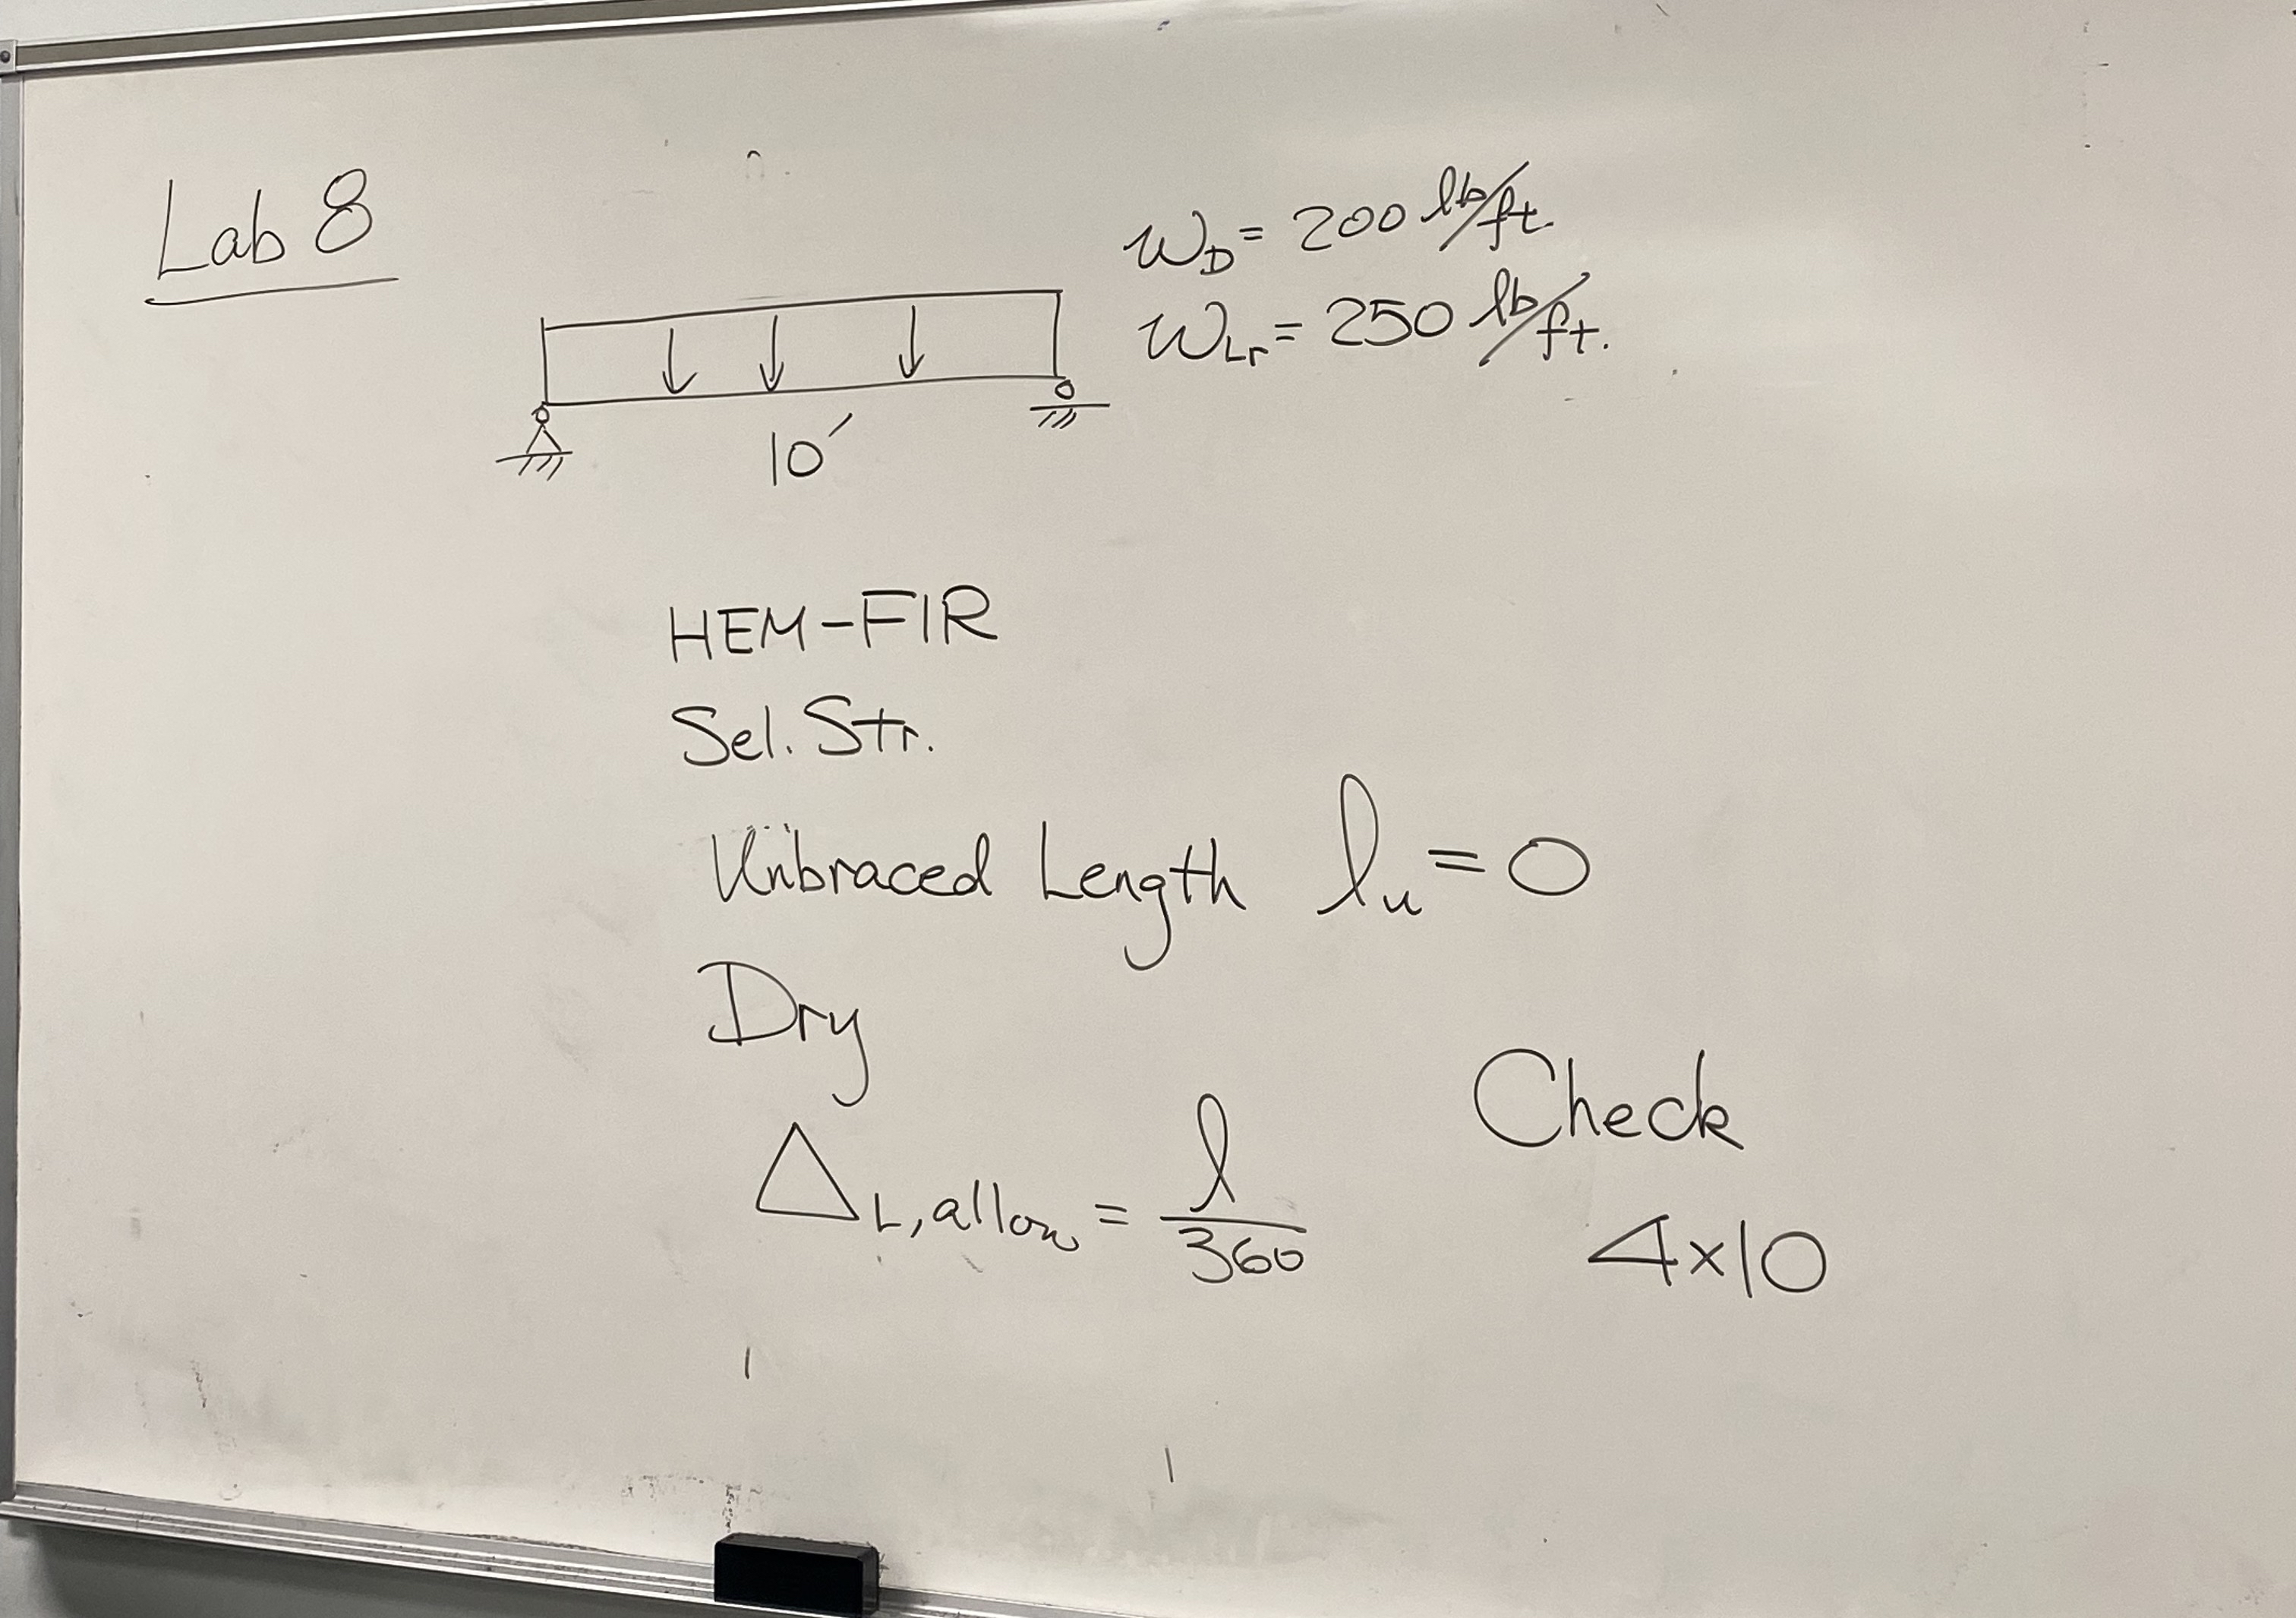 Lab 8
w_D = 200 lb/ft.
w_Lr = 250 lb/ft.
10'
HEM-FIR
Sel. Str.
Unbraced Length l_u = 0
Dry
Δ_L,allow = l/360
Check
4x10